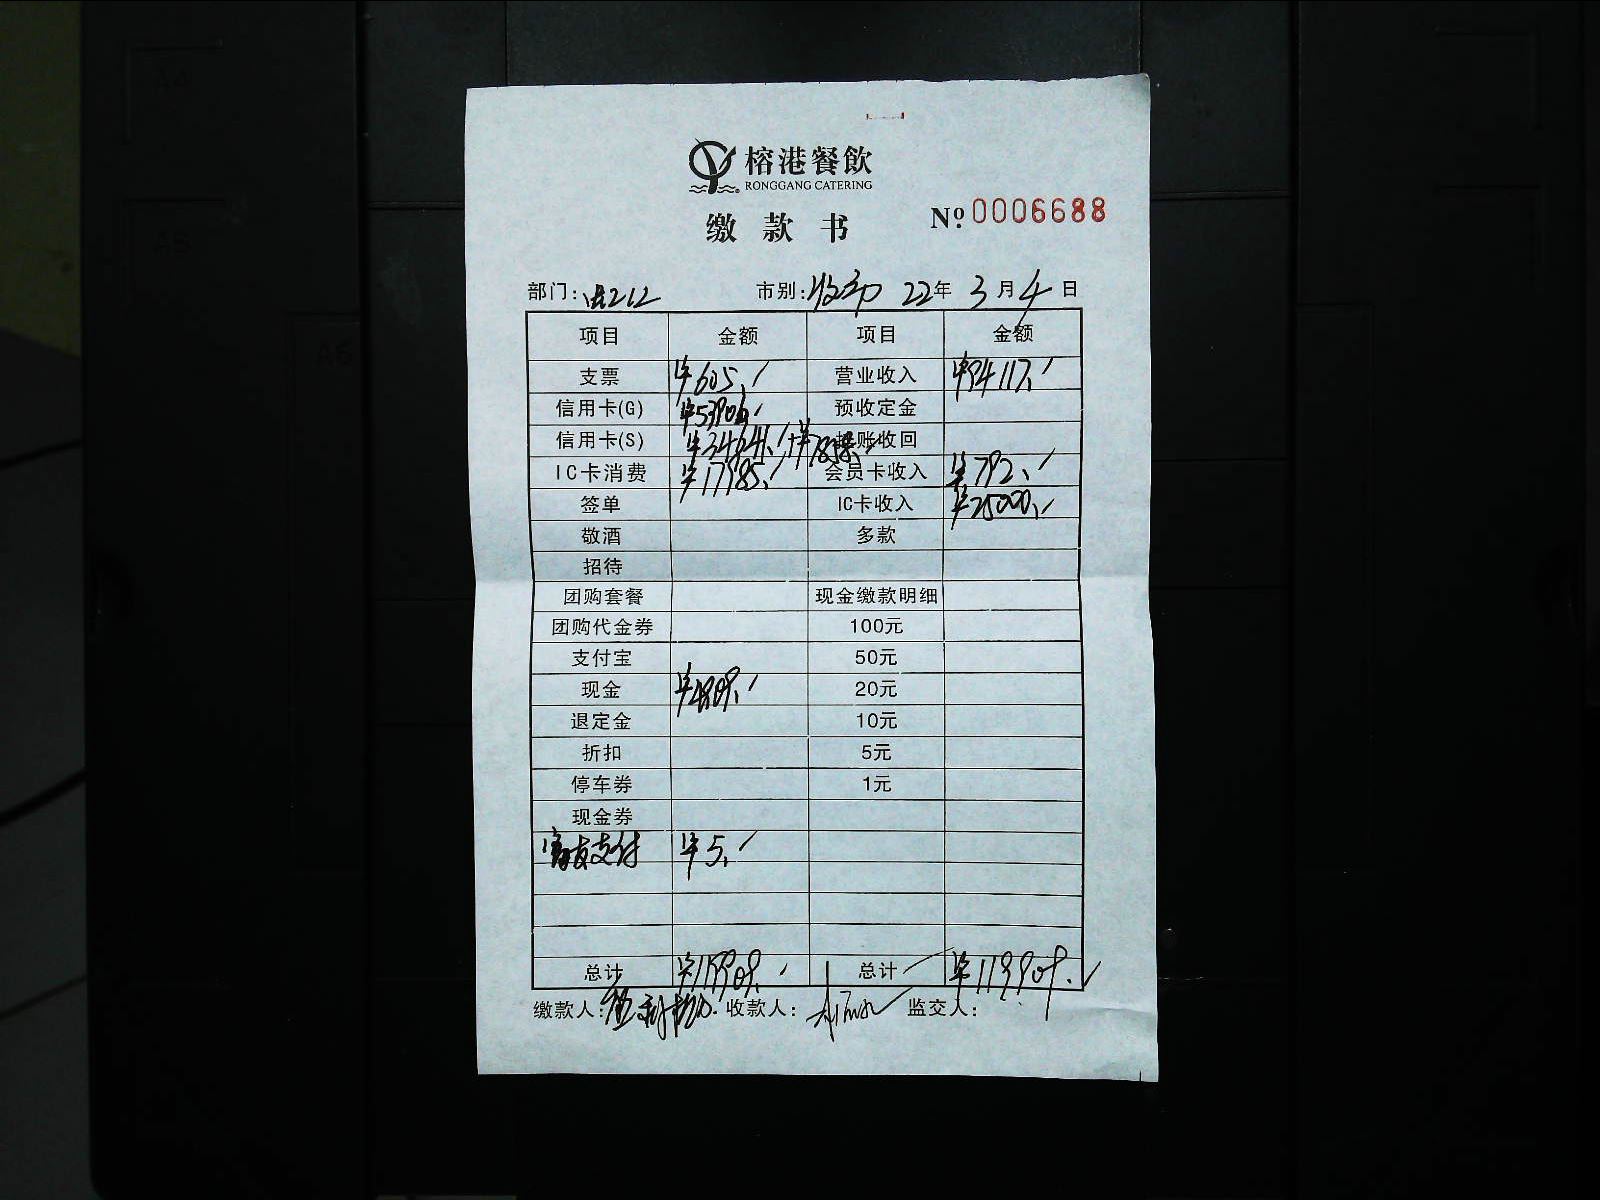 榕港餐飲
RONGGANG CATERING
缴款书 №0006688
部门: 市别: 22年 3月 4日
项目 金额 项目 金额
支票 ¥605. 营业收入 ¥94117.
信用卡(G) ¥53906 预收定金
信用卡(S) ¥34641.+¥7858. 挂账收回
IC卡消费 ¥17985. 会员卡收入 ¥792.
签单 IC卡收入 ¥25000.
敬酒 多款
招待
团购套餐 现金缴款明细
团购代金券 100元
支付宝 50元
现金 ¥4909. 20元
退定金 10元
折扣 5元
停车券 1元
现金券
支付 ¥5.
总计 ¥119909. 总计 ¥119909.
缴款人: 收款人: 监交人: